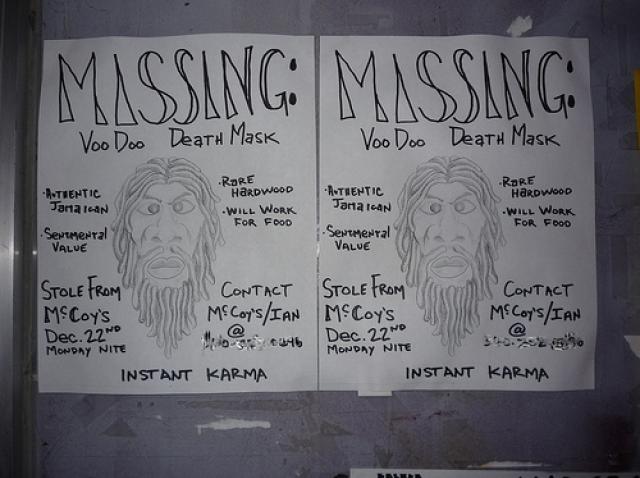 MISSING:
VOO DOO DEATH MASK
· AUTHENTIC
JAMAICAN
· SENTMENTAL
VALUE
· RARE
HARDWOOD
· WILL WORK
FOR FOOD
STOLE FROM
McCOY'S
DEC. 22ND
MONDAY NITE
CONTACT
McCOY'S/IAN
@
INSTANT KARMA
MISSING:
VOO DOO DEATH MASK
· AUTHENTIC
JAMAICAN
· SENTMENTAL
VALUE
· RARE
HARDWOOD
· WILL WORK
FOR FOOD
STOLE FROM
McCOY'S
DEC. 22ND
MONDAY NITE
CONTACT
McCOY'S/IAN
@
INSTANT KARMA